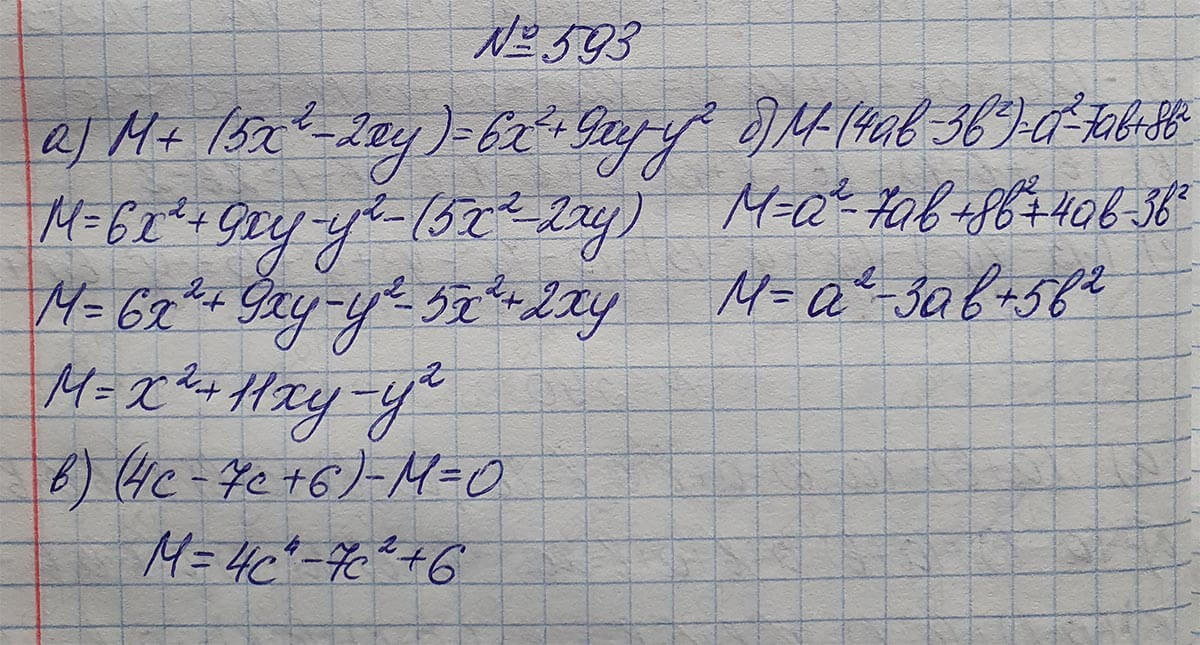 №593
а) M + (5x² - 2xy) = 6x² + 9xy - y²
M = 6x² + 9xy - y² - (5x² - 2xy)
M = 6x² + 9xy - y² - 5x² + 2xy
M = x² + 11xy - y²
б) M - (4ab - 3b²) = a² - 7ab + 8b²
M = a² - 7ab + 8b² + 4ab - 3b²
M = a² - 3ab + 5b²
в) (4c - 7c + 6) - M = 0
M = 4c⁴ - 7c² + 6